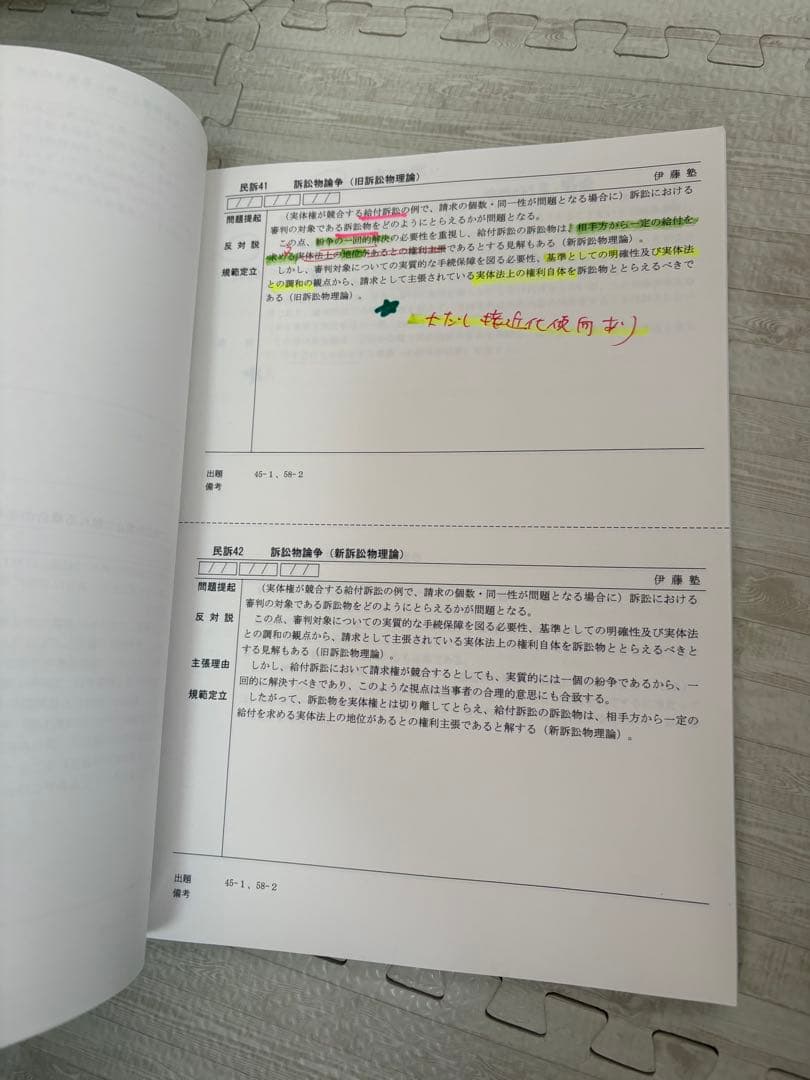 民訴41 訴訟物論争（旧訴訟物理論） 伊藤塾
／／ ／／ ／／
問題提起 （実体権が競合する給付訴訟の例で、請求の個数・同一性が問題となる場合に）訴訟における
審判の対象である訴訟物をどのようにとらえるかが問題となる。
反対説 この点、紛争の一回的解決の必要性を重視し、給付訴訟の訴訟物は、相手方から一定の給付を
求める実体法上の地位があるとの権利主張であるとする見解もある（新訴訟物理論）。
規範定立 しかし、審判対象についての実質的な手続保障を図る必要性、基準としての明確性及び実体法
との調和の観点から、請求として主張されている実体法上の権利自体を訴訟物ととらえるべきで
ある（旧訴訟物理論）。
ただし接近化傾向あり
出題 45-1、58-2
備考
民訴42 訴訟物論争（新訴訟物理論）
伊藤塾
／／ ／／ ／／
問題提起 （実体権が競合する給付訴訟の例で、請求の個数・同一性が問題となる場合に）訴訟における
審判の対象である訴訟物をどのようにとらえるかが問題となる。
反対説 この点、審判対象についての実質的な手続保障を図る必要性、基準としての明確性及び実体法
との調和の観点から、請求として主張されている実体法上の権利自体を訴訟物ととらえるべきと
する見解もある（旧訴訟物理論）。
主張理由 しかし、給付訴訟において請求権が競合するとしても、実質的には一個の紛争であるから、一
回的に解決すべきであり、このような視点は当事者の合理的意思にも合致する。
規範定立 したがって、訴訟物を実体権とは切り離してとらえ、給付訴訟の訴訟物は、相手方から一定の
給付を求める実体法上の地位があるとの権利主張であると解する（新訴訟物理論）。
出題 45-1、58-2
備考